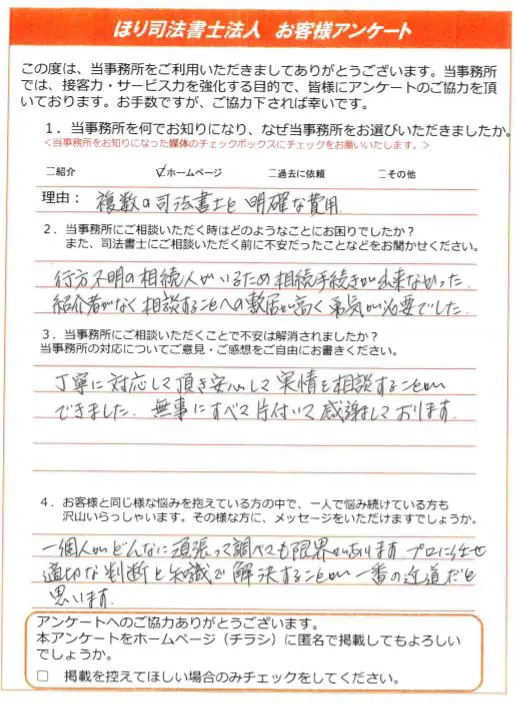 ほり司法書士法人 お客様アンケート
この度は、当事務所をご利用いただきましてありがとうございます。当事務所
では、接客力・サービス力を強化する目的で、皆様にアンケートのご協力を頂
いております。お手数ですが、ご協力下されば幸いです。
１．当事務所を何でお知りになり、なぜ当事務所をお選びいただきましたか。
＜当事務所をお知りになった媒体のチェックボックスにチェックをお願いいたします。＞
□紹介 ☑ホームページ □過去に依頼 □その他
理由： 複数の司法書士と明確な費用
２．当事務所にご相談いただく時はどのようなことにお困りでしたか？
また、司法書士にご相談いただく前に不安だったことなどをお聞かせください。
行方不明の相続人がいるため相続手続きが出来なかった.
紹介者がなく相談することへの敷居が高く勇気が必要でした.
３．当事務所にご相談いただくことで不安は解消されましたか？
当事務所の対応についてご意見・ご感想をご自由にお書きください。
丁寧に対応して頂き安心して実情を相談することが
できました. 無事にすべて片付いて感謝しております.
４．お客様と同じ様な悩みを抱えている方の中で、一人で悩み続けている方も
沢山いらっしゃいます。その様な方に、メッセージをいただけますでしょうか。
一個人がどんなに頑張って調べても限界があります プロに任せ
適切な判断と知識で解決することが一番の近道だと
思います.
アンケートへのご協力ありがとうございます。
本アンケートをホームページ（チラシ）に匿名で掲載してもよろしい
でしょうか。
□ 掲載を控えてほしい場合のみチェックをしてください。